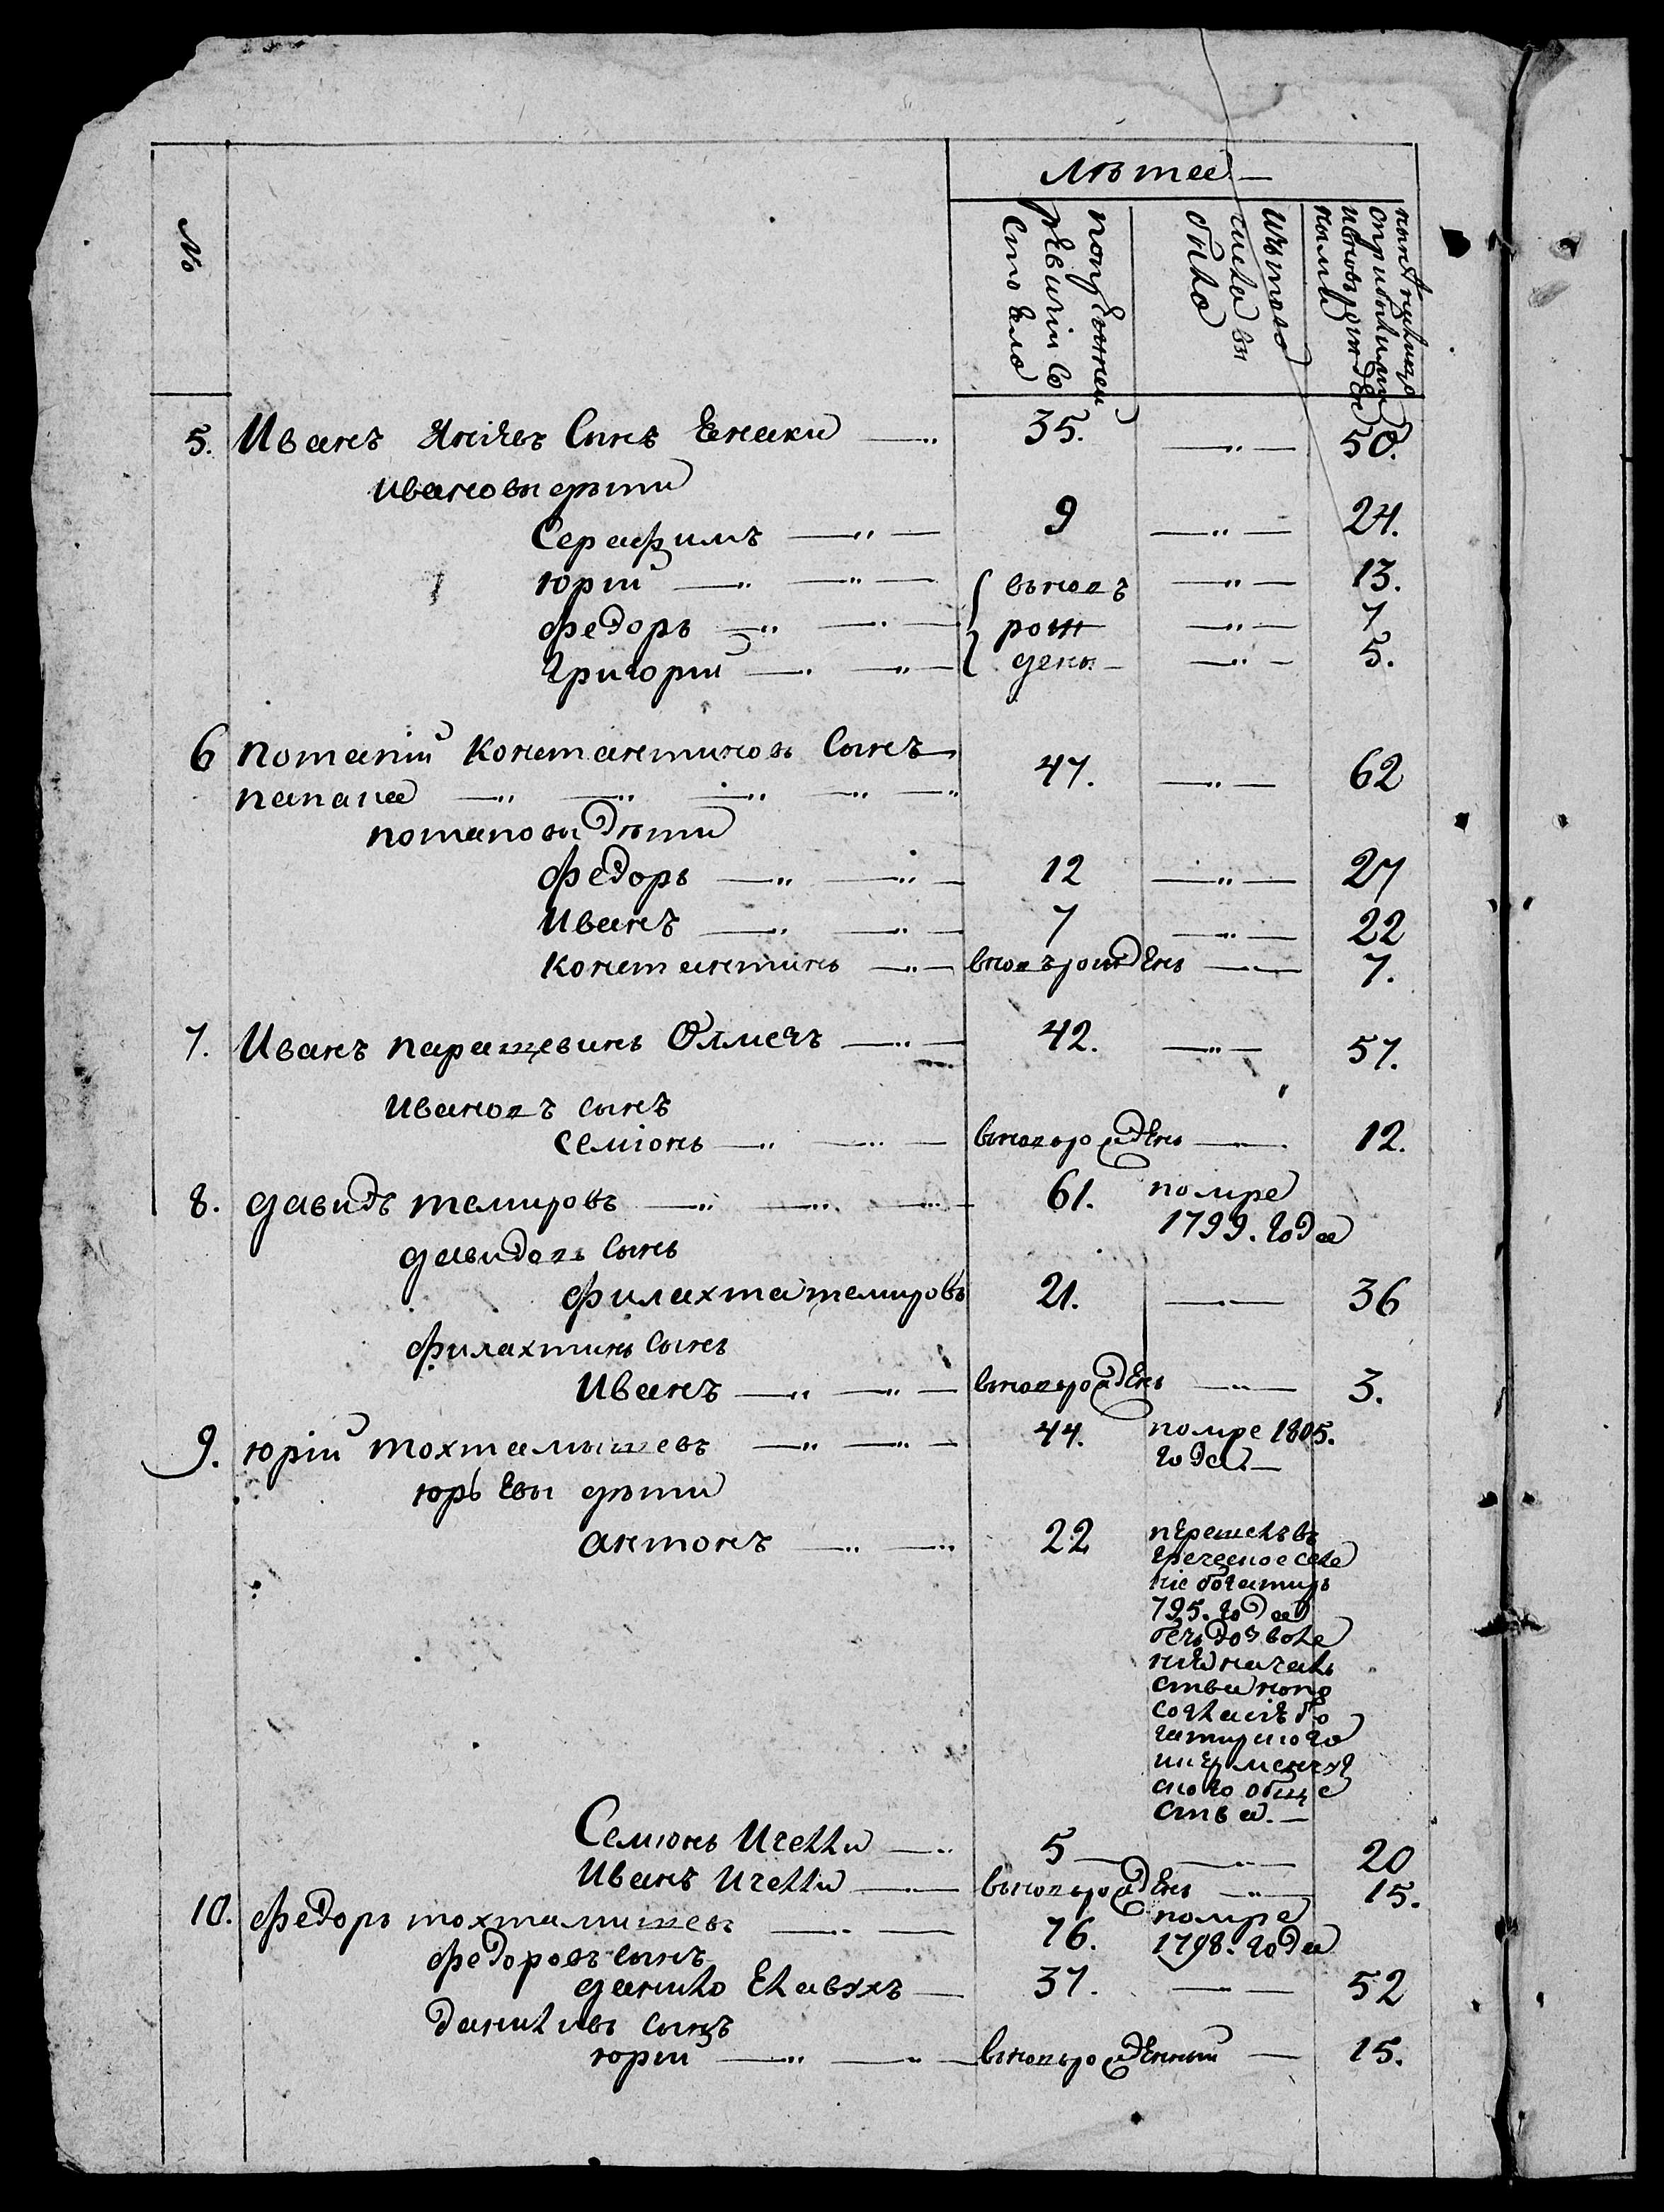 №
лѣта —
по пре
ревизіи со
стояло
изъ того
числа вы
было
5. Иванъ Янічъ Синъ Енаки — 35. — 50.
ивановы дѣти
Серафимъ — 9 — 24.
юрій — вьновъ — 13.
федоръ — рож — 7
Григорий — дены — 5.
6 потапій константиновъ Сынъ
папана — 47. — 62
потаповы дѣти
федоръ — 12 — 27
Иванъ — 7 — 22
константинъ — вновърожденъ — 7.
7. Иванъ паращевинъ — 42. — 57.
Ивановъ сынъ
семіонъ — вьновьрожденъ — 12.
8. давидъ темировъ — 61. помре
1799. Года
давидовъ Сынъ
филахта темировъ 21. — 36
филахтинъ Сынъ
Иванъ — вьновьрожденъ — 3.
9. юрій тохтамышевъ — 44. помре 1805.
года. —
юрьевы дѣти
антонъ — 22 перешелъ въ
греческое селе
ніе богатиръ
795. года
безъ дозволе
ния началь
ства попо
согласіѣ бо
гатирского
общe
ства. —
Семіонъ Ичелли — 5 — 20
Иванъ Ичелли — вьновьрожденъ — 15.
10. федоръ тохтамишевъ — 76. помре
1798. года
федоровъ сынъ
данило Елавхъ — 37. — 52
даниловъ сынъ
юрій — вьновьрожденный — 15.